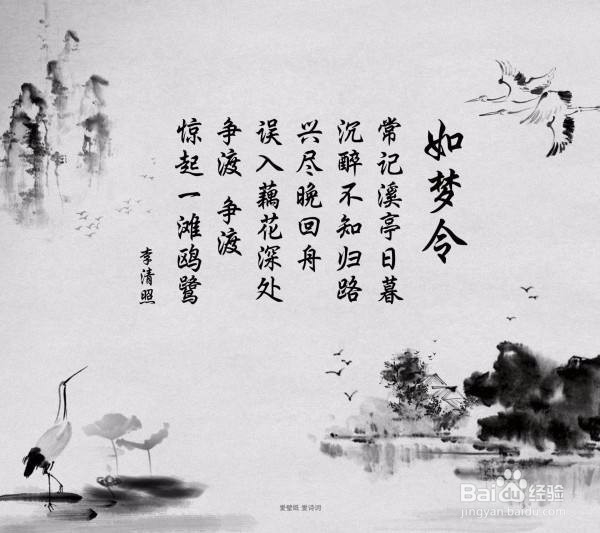 如梦令
常记溪亭日暮
沉醉不知归路
兴尽晚回舟
误入藕花深处
争渡 争渡
惊起一滩鸥鹭
李清照
爱壁纸 爱诗词
Bai 经验
jingyan.baidu.com